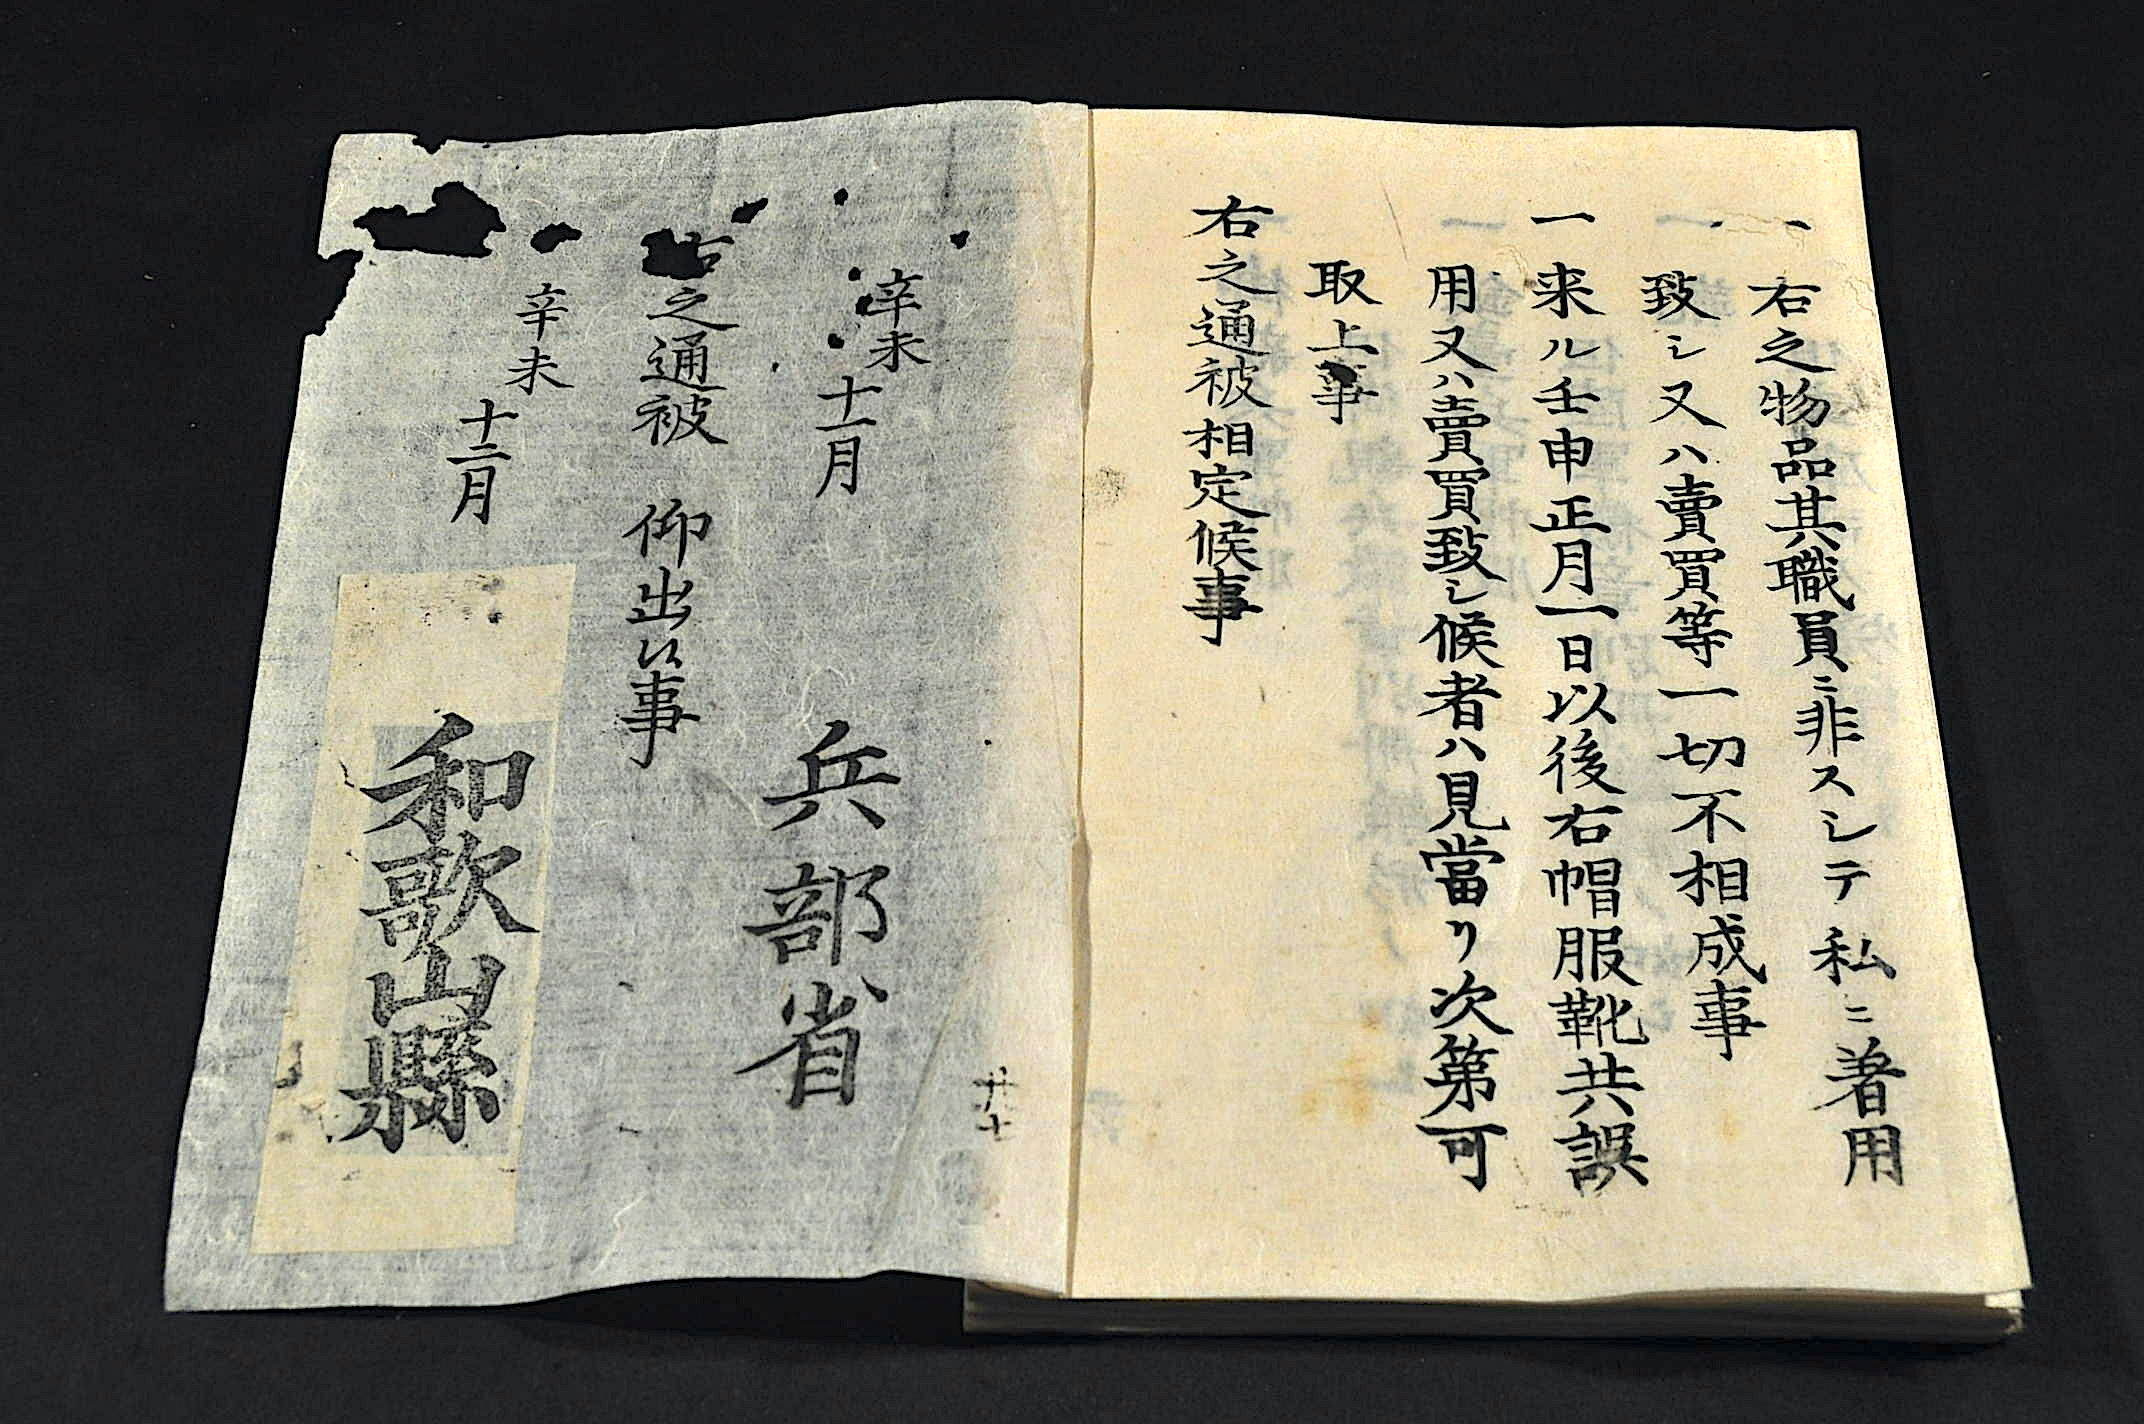 一右之物品其職員ニ非スシテ私ニ着用
致シ又ハ賣買等一切不相成事
一来ル壬申正月一日以後右帽服靴共誤
用又ハ賣買致シ候者ハ見當リ次第可
取上事
右之通被相定候事
辛未
十一月
兵部省
右之通被 仰出候事
辛未
十二月
和歌山縣
廿七